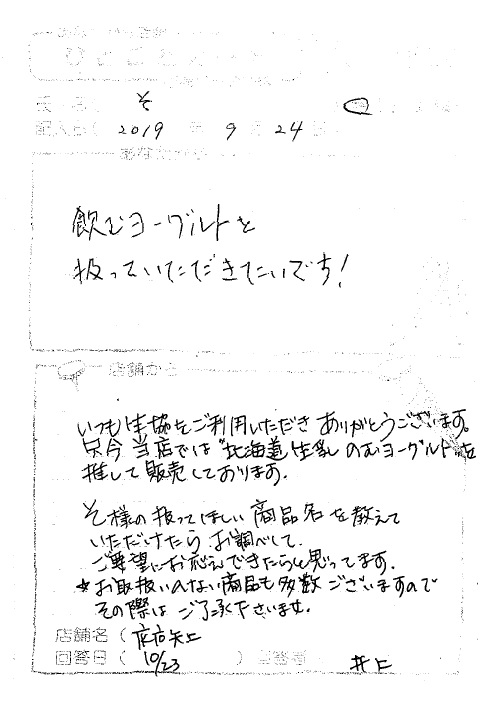 ひとこと
そ
記入日(2019年9月24日
飲むヨーグルトを
扱っていただきたいです!
店舗から
いつも生協をご利用いただきありがとうございます。
只今当店では"北海道生乳のむヨーグルト"を
推して販売しております。
そ様の扱ってほしい商品名を教えて
いただけたらお調べして、
ご要望にお応えできたらと思ってます。
*お取扱いのない商品も多数ございますので
その際はご了承下さいませ。
店舗名(
回答日(10/23)回答者
井上